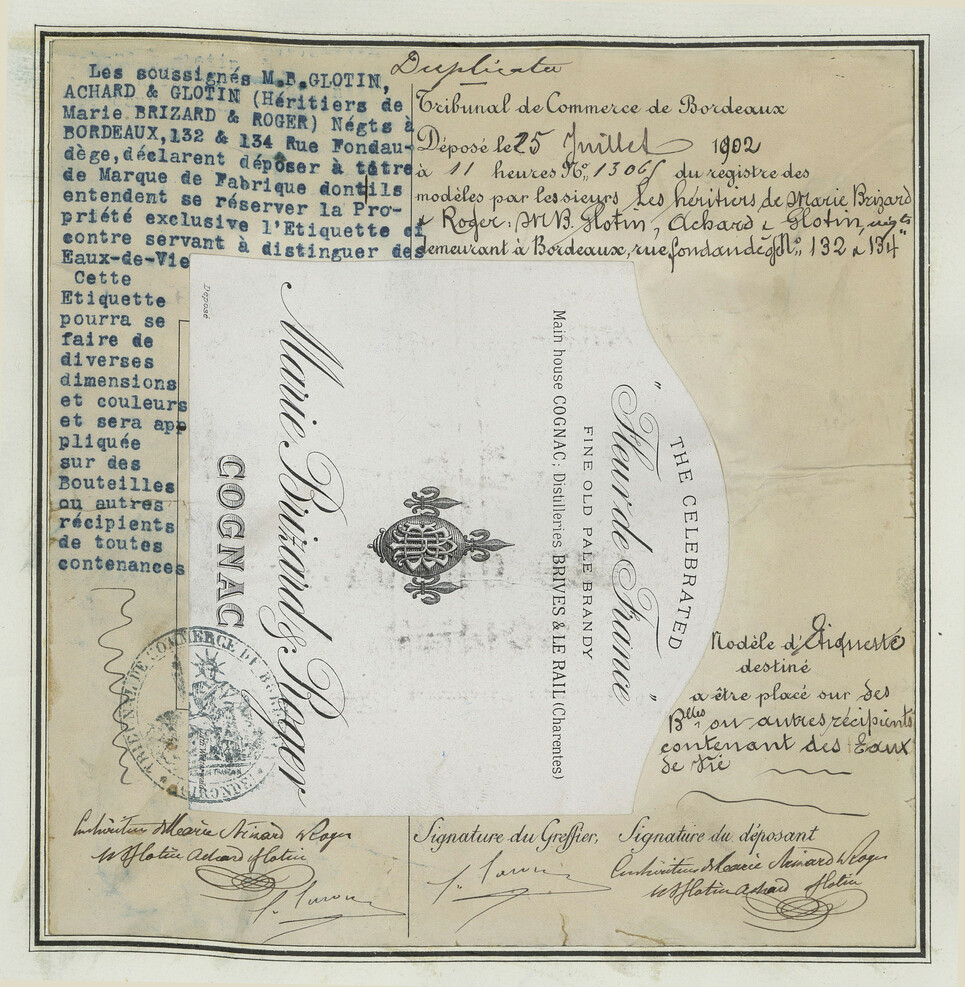 Les soussignés M.B.GLOTIN,
ACHARD & GLOTIN (Héritiers de
Marie BRIZARD & ROGER) Négts à
BORDEAUX,132 & 134 Rue Fondau-
dège,déclarent dépôser à titre
de Marque de Fabrique dont ils
entendent se réserver la Pro-
priété exclusive l'Etiquette ci
contre servant à distinguer des
Eaux-de-Vie
Cette
Etiquette
pourra se
faire de
diverses
dimensions
et couleurs
et sera app
pliquée
sur des
Bouteilles
ou autres
récipients
de toutes
contenances
Duplicata
Tribunal de Commerce de Bordeaux
Déposé le 25 Juillet 1902
à 11 heures No. 13065 du registre des
modèles par les sieurs Les héritiers de Marie Brizard
& Roger: M.B. Glotin, Achard & Glotin, négts
demeurant à Bordeaux, rue fondaudège No. 132 & 134
Déposé
THE CELEBRATED
"Fleur de France"
FINE OLD PALE BRANDY
Main house COGNAC; Distilleries BRIVES & LE RAIL (Charentes)
Marie Brizard & Roger
COGNAC
Modèle d'Etiquette
destiné
a être placé sur des
Blles ou autres récipients
contenant des Eaux
de Vie
TRIBUNAL DE COMMERCE DE BORDEAUX
(GIRONDE)
Les héritiers de Marie Brizard & Roger
MB Glotin Achard Glotin
Signature du Greffier,
Signature du déposant
Les héritiers de Marie Brizard & Roger
MB Glotin Achard Glotin